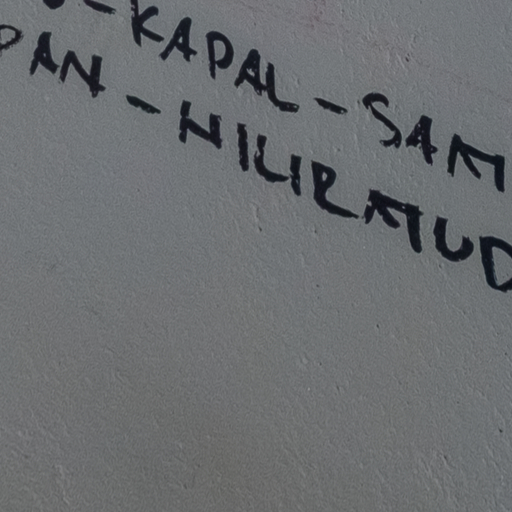 -KAPAL-SAM
PAN-NILIRMUD